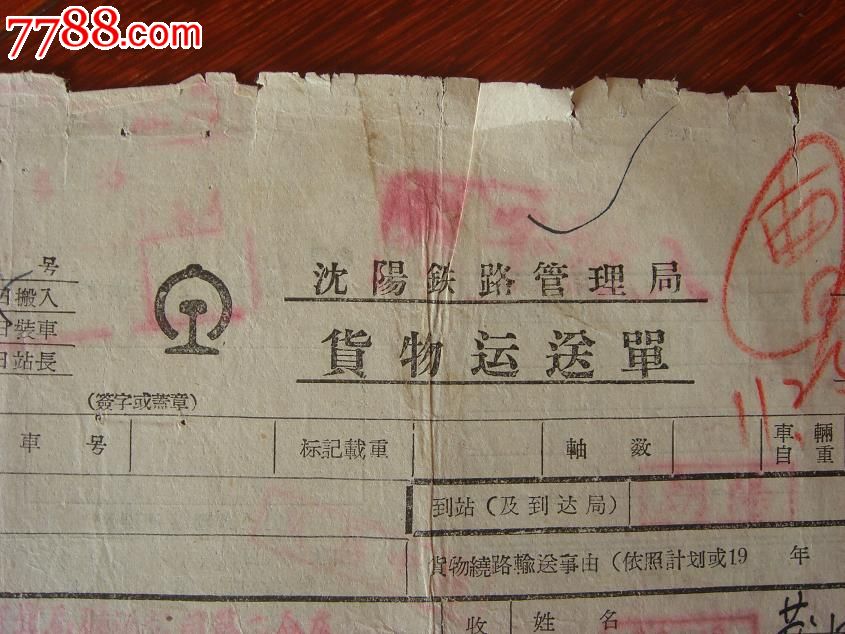 7788.com
号
日搬入
日装車
日站長
沈陽鉄路管理局
貨物运送單
(簽字或蓋章)
車号
标記載重
軸数
車輛
自重
到站(及到达局)
貨物繞路輸送事由(依照計划或19 年
收 姓名